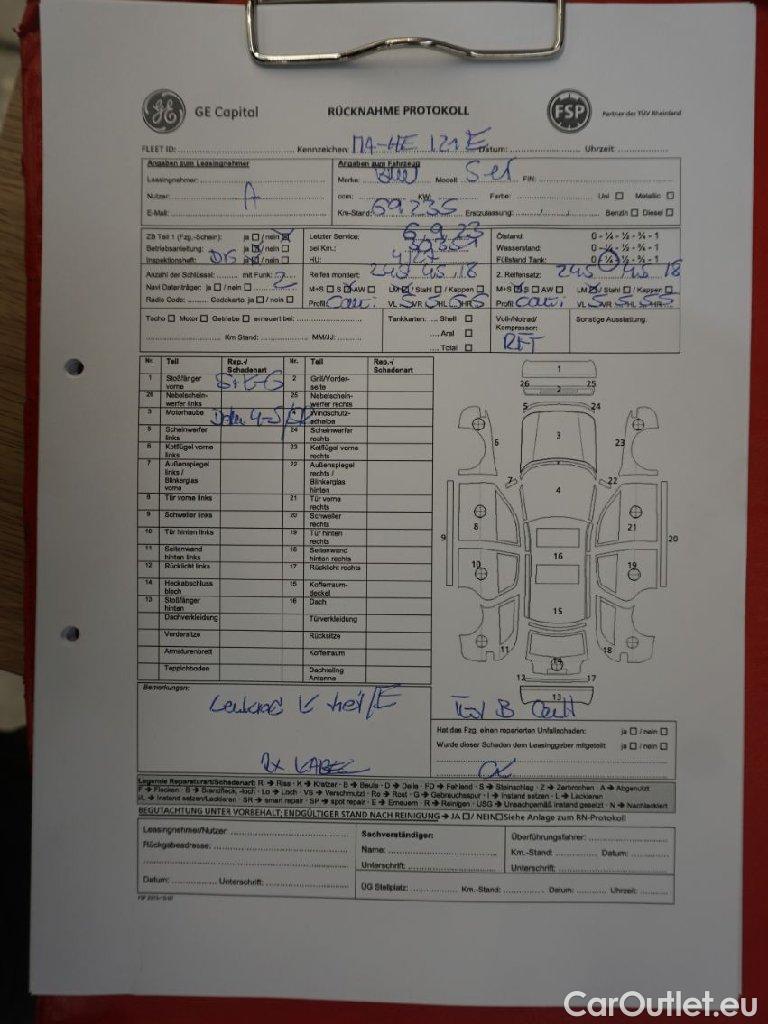 GE Capital RÜCKNAHME PROTOKOLL FSP Partner der TÜV Rheinland
FLEET ID: Kennzeichen: MA-HE 121E Datum: Uhrzeit:
Angaben zum Leasingnehmer Angaben zum Fahrzeug
Leasingnehmer: Marke: Modell: FIN:
Nutzer: A ccm: KW: Farbe: Uni Metallic
E-Mail: Km-Stand: 69.235 Erstzulassung: Benzin Diesel
ZB Teil 1 (Fzg.-Schein): ja / nein Letzter Service: 6.9.23 Ölstand 0 - ¼ - ½ - ¾ - 1
Betriebsanleitung: ja / nein bei Km.: Wasserstand: 0 - ¼ - ½ - ¾ - 1
Inspektionsheft: ja / nein HU: 4/27 Füllstand Tank: 0 - ¼ - ½ - ¾ - 1
Anzahl der Schlüssel: mit Funk: 2 Reifen montiert: 245 45 18 2. Reifensatz: 245 45 18
Navi Datenträger: ja / nein M+S S AW LM / Stahl / Kappen M+S S AW LM / Stahl / Kappen
Radio Code: Codekarte ja / nein Profil Conti VL 5 VR 5 HL 5 HR 5 Profil Conti VL 5 VR 5 HL 5 HR 5
Tacho Motor Getriebe erneuert bei: Tankkarten: Shell Voll-/Notrad/ Sonstige Ausstattung:
Aral Kompressor:
Km Stand: MM/JJ: Total RFT
Nr. Teil Rep.-/ Schadenart Nr. Teil Rep.-/ Schadenart
1 Stoßfänger vorne 2 Grill/Vorderseite
26 Nebelscheinwerfer links 25 Nebelscheinwerfer rechts
3 Motorhaube Windschutzscheibe
5 Scheinwerfer links 24 Scheinwerfer rechts
6 Kotflügel vorne links 23 Kotflügel vorne rechts
7 Außenspiegel links / Blinkerglas vorne 22 Außenspiegel rechts / Blinkerglas hinten
8 Tür vorne links 21 Tür vorne rechts
9 Schweller links 20 Schweller rechts
10 Tür hinten links 19 Tür hinten rechts
11 Seitenwand hinten links 18 Seitenwand hinten rechts
12 Rücklicht links 17 Rücklicht rechts
14 Heckabschlussblech 15 Kofferraumdeckel
13 Stoßfänger hinten 16 Dach
Dachverkleidung Türverkleidung
Vordersitze Rücksitze
Armaturenbrett Kofferraum
Teppichboden Dachreling Antenne
Bemerkungen:
2x KABEL
Hat das Fzg. einen reparierten Unfallschaden: ja / nein
Wurde dieser Schaden dem Leasinggeber mitgeteilt ja / nein
Legende Reparaturart/Schadenart: R → Riss - K → Kratzer - B → Beule - D → Delle - FD → Fehlend - S → Steinschlag - Z → Zerbrochen - A → Abgenutzt
F → Flecken - B → Brandfleck, -loch - Lo → Loch - VS → Verschmutzt - Ro → Rost - G → Gebrauchsspur - I → Instand setzen - L → Lackieren
IL → Instand setzen/Lackieren - SR → smart repair - SP → spot repair - E → Erneuern - R → Reinigen - USG → Unsachgemäß instand gesetzt - N → Nachlackiert
BEGUTACHTUNG UNTER VORBEHALT; ENDGÜLTIGER STAND NACH REINIGUNG → JA / NEIN Siehe Anlage zum RN-Protokoll
Leasingnehmer/Nutzer: Sachverständiger: Überführungsfahrer:
Rückgabeadresse: Name: Km.-Stand: Datum:
Unterschrift: Unterschrift:
Datum: Unterschrift: ÜG Stellplatz: Km.-Stand: Datum: Uhrzeit:
CarOutlet.eu